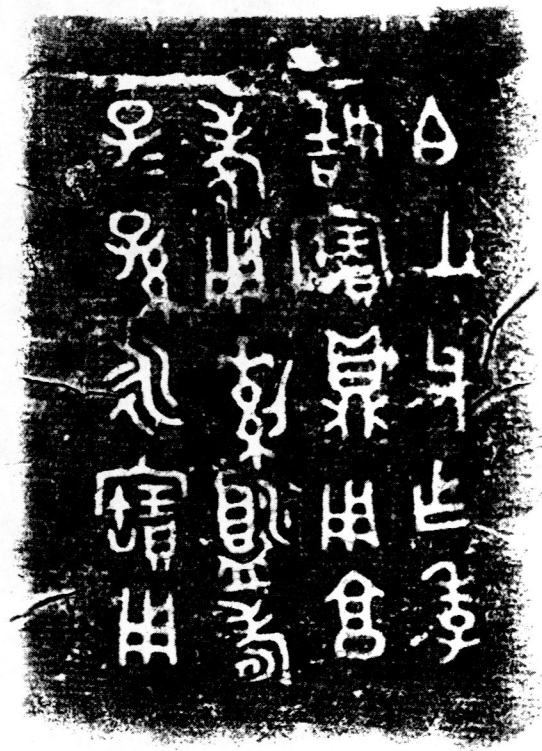 白父乍季
姞寶鼎用享
孝用眉壽
子=孫=永寶用